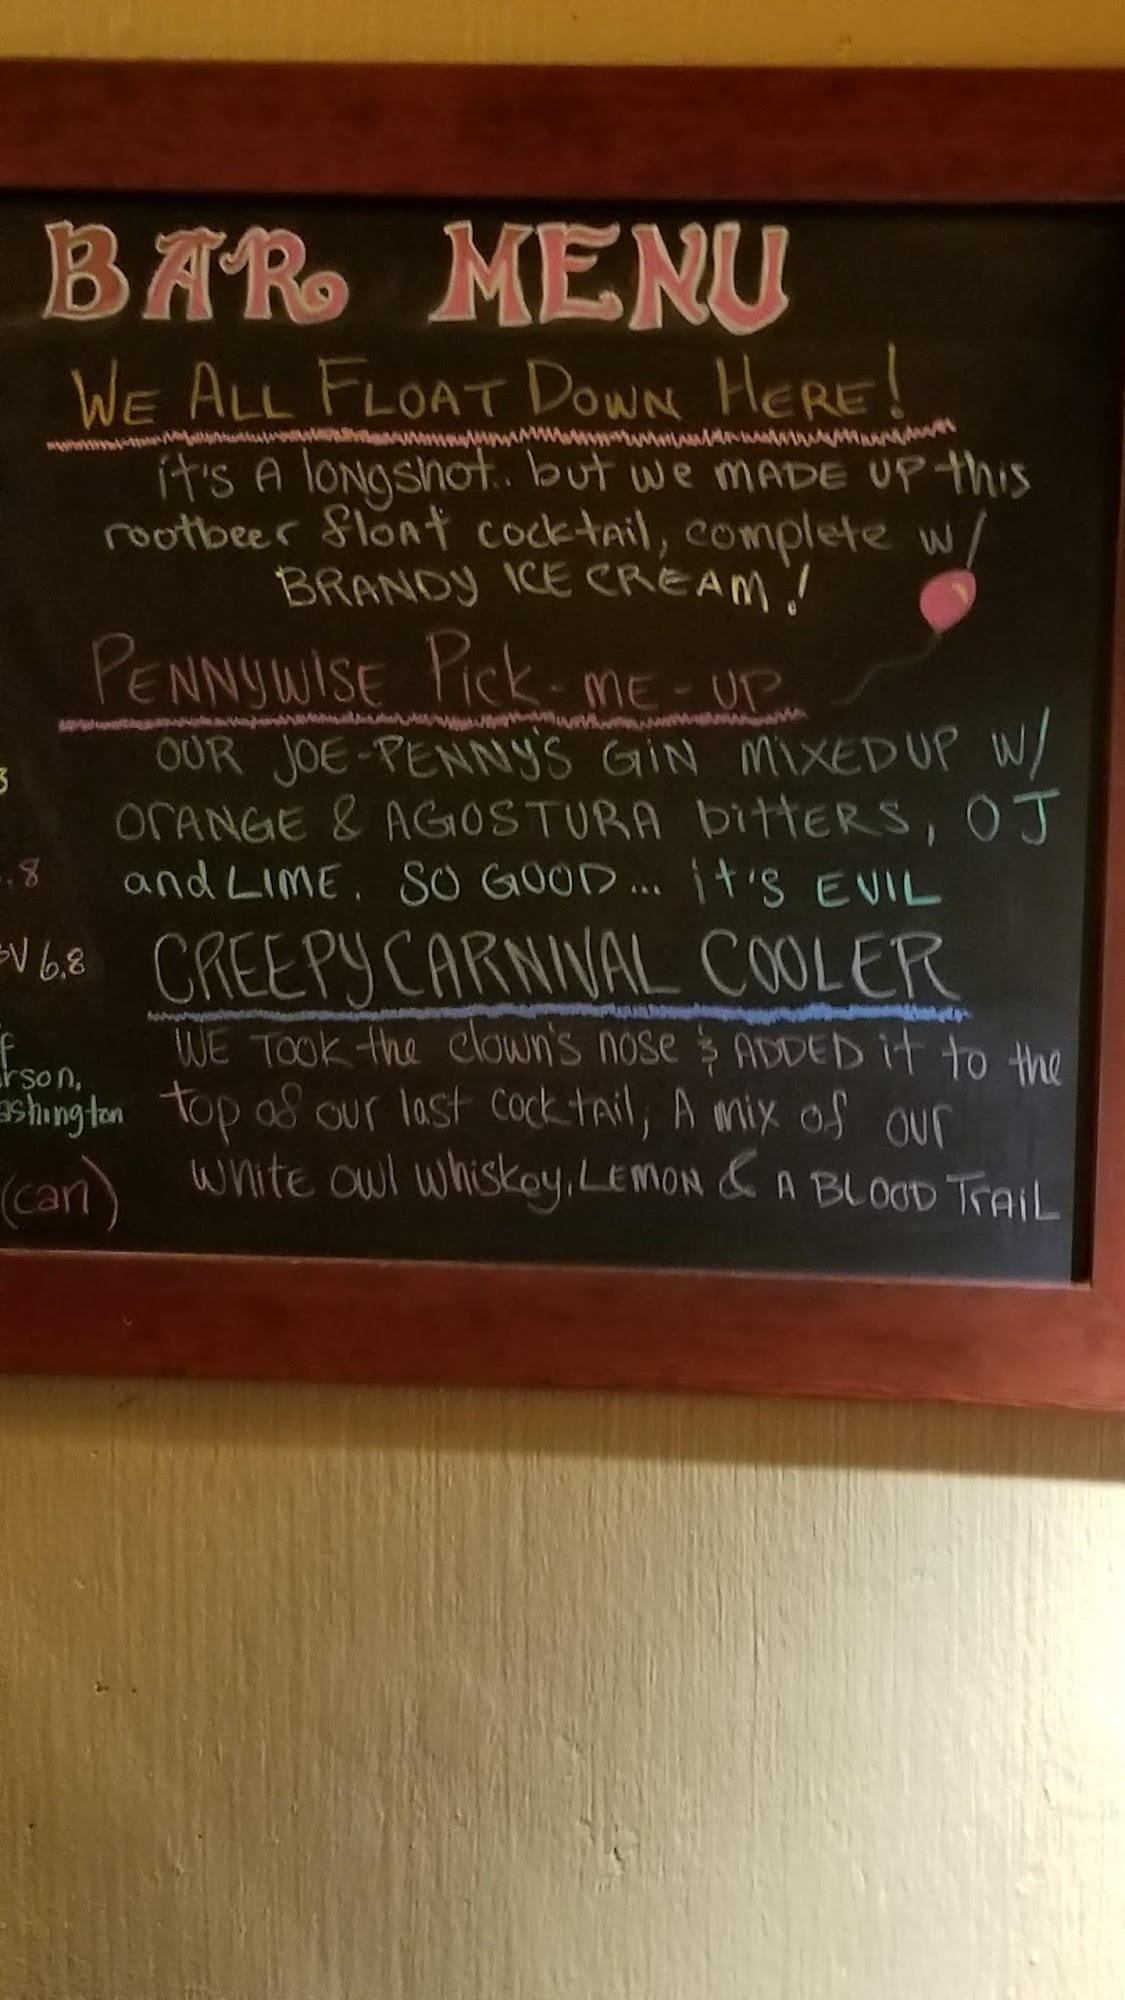 BAR MENU
WE ALL FLOAT DOWN HERE!
it's A longshot.. but we MADE UP this
rootbeer float cocktail, complete w/
BRANDY ICE CREAM!
PENNYWISE Pick-ME-UP
OUR JOE-PENNY'S GIN MIXED UP W/
ORANGE & AGOSTURA bittERS, OJ
and LIME. SO GOOD... it's EVIL
CREEPY CARNIVAL COOLER
WE TOOK the clown's nose & ADDED it to the
top of our last cocktail, A mix of our
white owl whiskey, LEMON & A BLOOD TRAIL
3
.8
BV 6.8
f
rson,
ashington
(can)